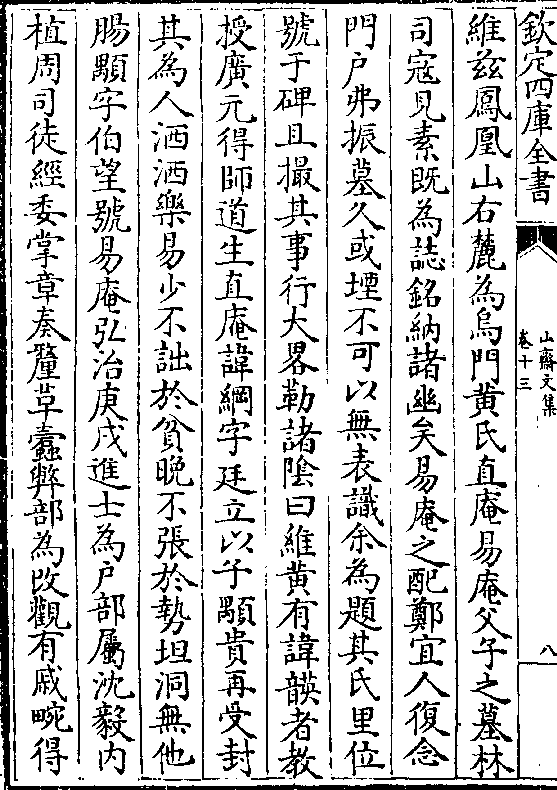 欽定四庫全書
山齋文集
卷十三
八
維兹鳳凰山右麓為烏門黄氏直庵易庵父子之墓林
司寇見素既為誌銘納諸幽矣易庵之配鄭宜人復念
門户弗振墓久或堙不可以無表識余為題其氏里位
號于碑且撮其事行大畧勒諸陰曰維黄有諱韺者教
授廣元得師道生直庵諱綱字廷立以子顒貴再受封
其為人洒洒樂易少不詘於貧晩不張於勢坦洞無他
腸顒字伯望號易庵弘治庚戌進士為户部屬沈毅内
植周司徒經委掌章奏釐革蠹弊部為改觀有戚畹得